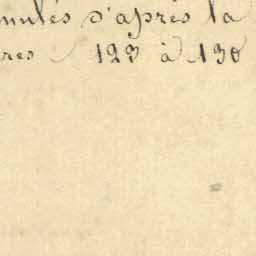 nnulés d'après la
res 123 à 130